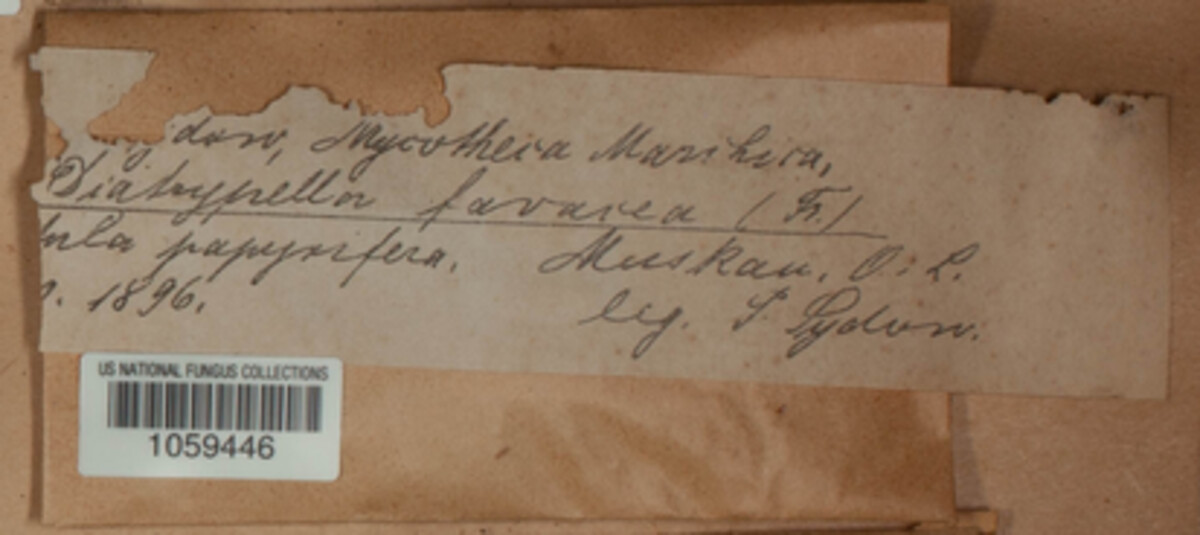 ydow, Mycotheca Marchica,
Diatrypella favacea (Fr.)
tula papyrifera. Muskau, O. L.
. 1896. leg. P Sydow.
US NATIONAL FUNGUS COLLECTIONS
1059446